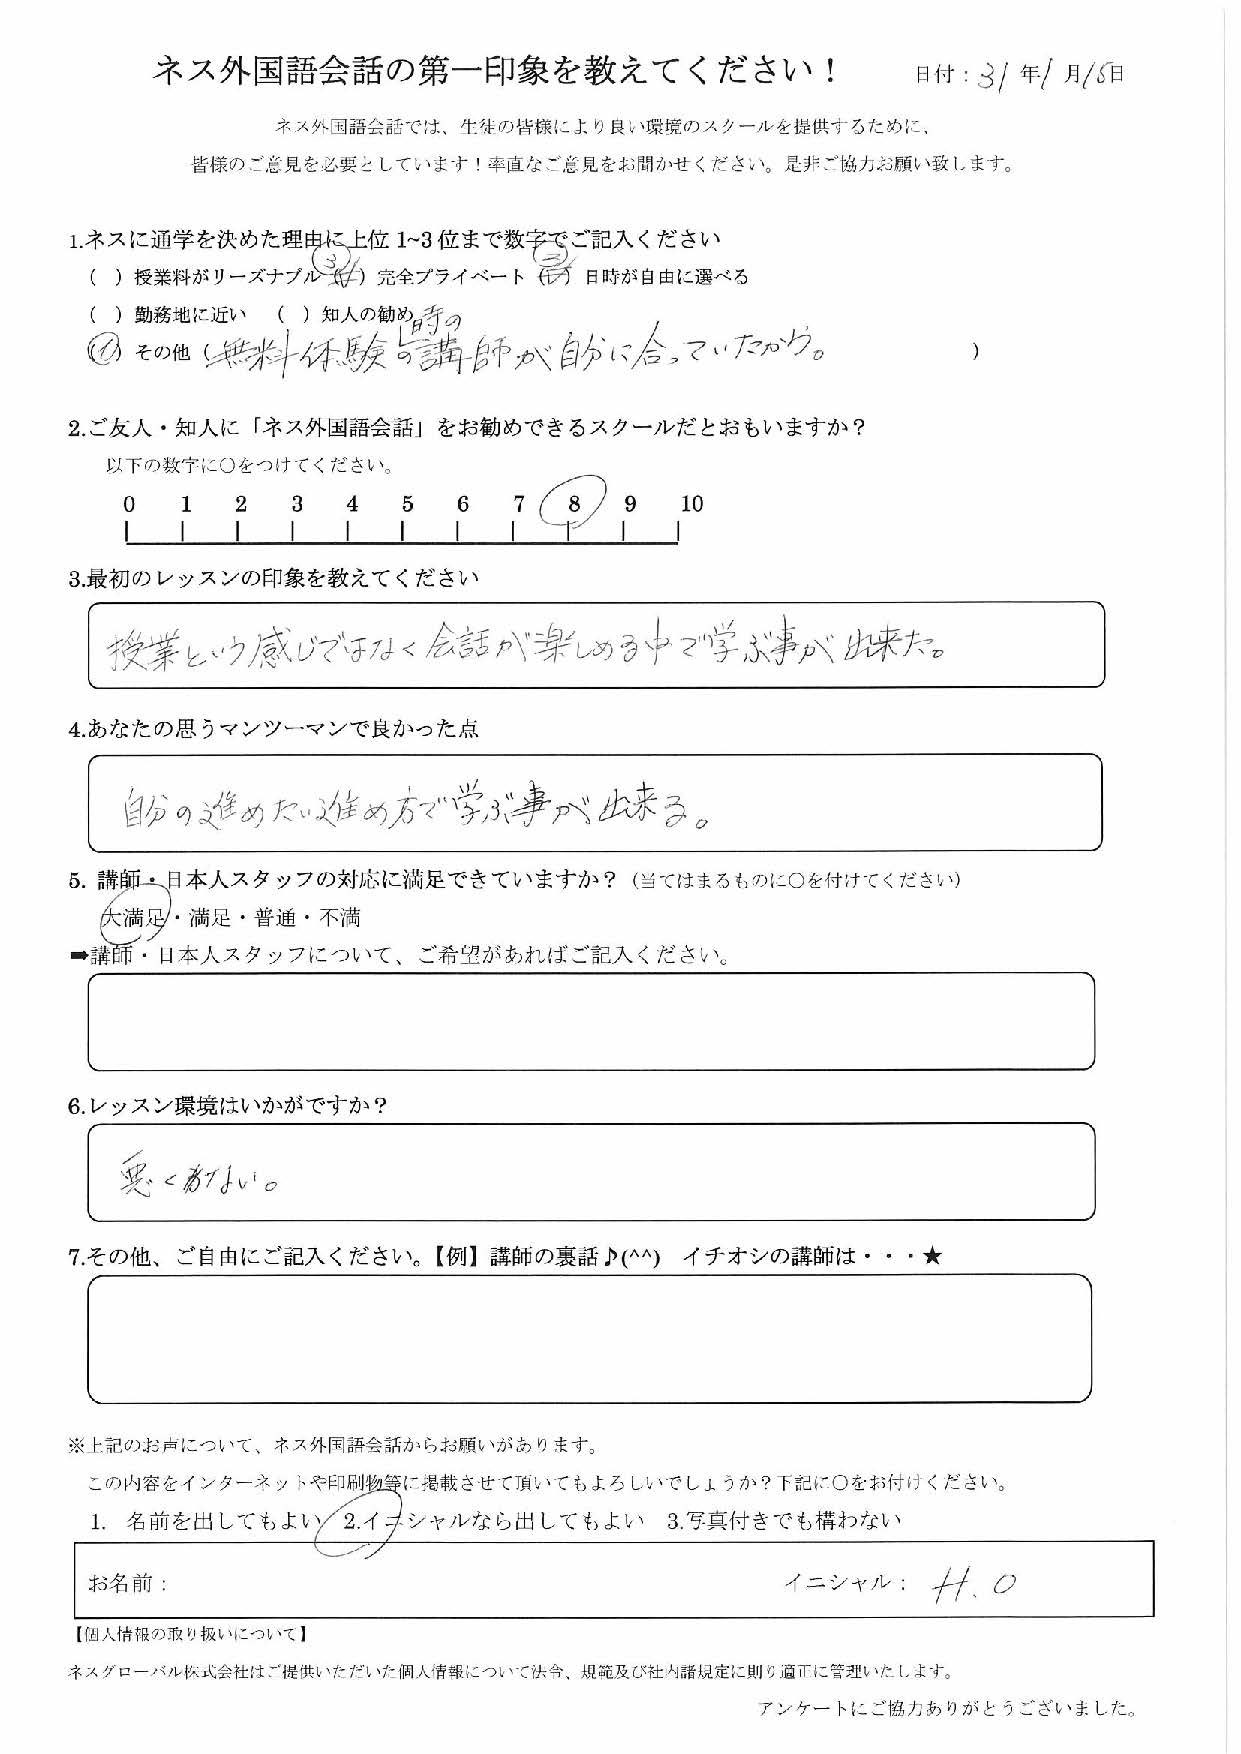 ネス外国語会話の第一印象を教えてください！ 日付：31年1月15日
ネス外国語会話では、生徒の皆様により良い環境のスクールを提供するために、
皆様のご意見を必要としています！率直なご意見をお聞かせください。是非ご協力お願い致します。
1.ネスに通学を決めた理由に上位 1~3 位まで数字でご記入ください
（ ）授業料がリーズナブル（3）完全プライベート（2）日時が自由に選べる
（ ）勤務地に近い （ ）知人の勧め
（1）その他（無料体験時の講師が自分に合っていたから。）
2.ご友人・知人に「ネス外国語会話」をお勧めできるスクールだとおもいますか？
以下の数字に〇をつけてください。
0 1 2 3 4 5 6 7 8 9 10
3.最初のレッスンの印象を教えてください
授業という感じではなく会話が楽しめる中で学ぶ事が出来た。
4.あなたの思うマンツーマンで良かった点
自分の進めたい進め方で学ぶ事が出来る。
5. 講師・日本人スタッフの対応に満足できていますか？（当てはまるものに〇を付けてください）
大満足・満足・普通・不満
➡講師・日本人スタッフについて、ご希望があればご記入ください。
6.レッスン環境はいかがですか？
悪くない。
7.その他、ご自由にご記入ください。【例】講師の裏話♪(^^) イチオシの講師は・・・★
※上記のお声について、ネス外国語会話からお願いがあります。
この内容をインターネットや印刷物等に掲載させて頂いてもよろしいでしょうか？下記に〇をお付けください。
1. 名前を出してもよい 2.イニシャルなら出してもよい 3.写真付きでも構わない
お名前： イニシャル： H.O
【個人情報の取り扱いについて】
ネスグローバル株式会社はご提供いただいた個人情報について法令、規範及び社内諸規定に則り適正に管理いたします。
アンケートにご協力ありがとうございました。